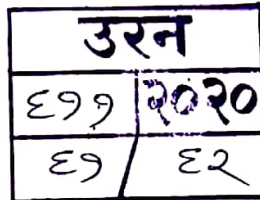 उरन
६११ २०२०
६१ / ६२